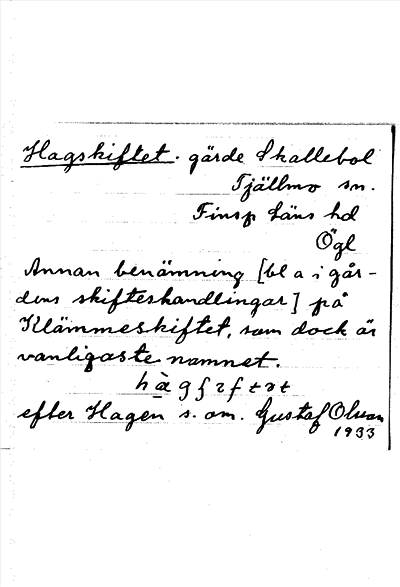 Hagskiftet. gärde Skallebol
Tjällmo sn.
Finsp läns hd
Ögl
Annan benämning [bl a i går-
dens skifteshandlingar] på
Klämmeskiftet, som dock är
vanligaste namnet.
efter Hagen s. om. Gustaf Olsson
1933